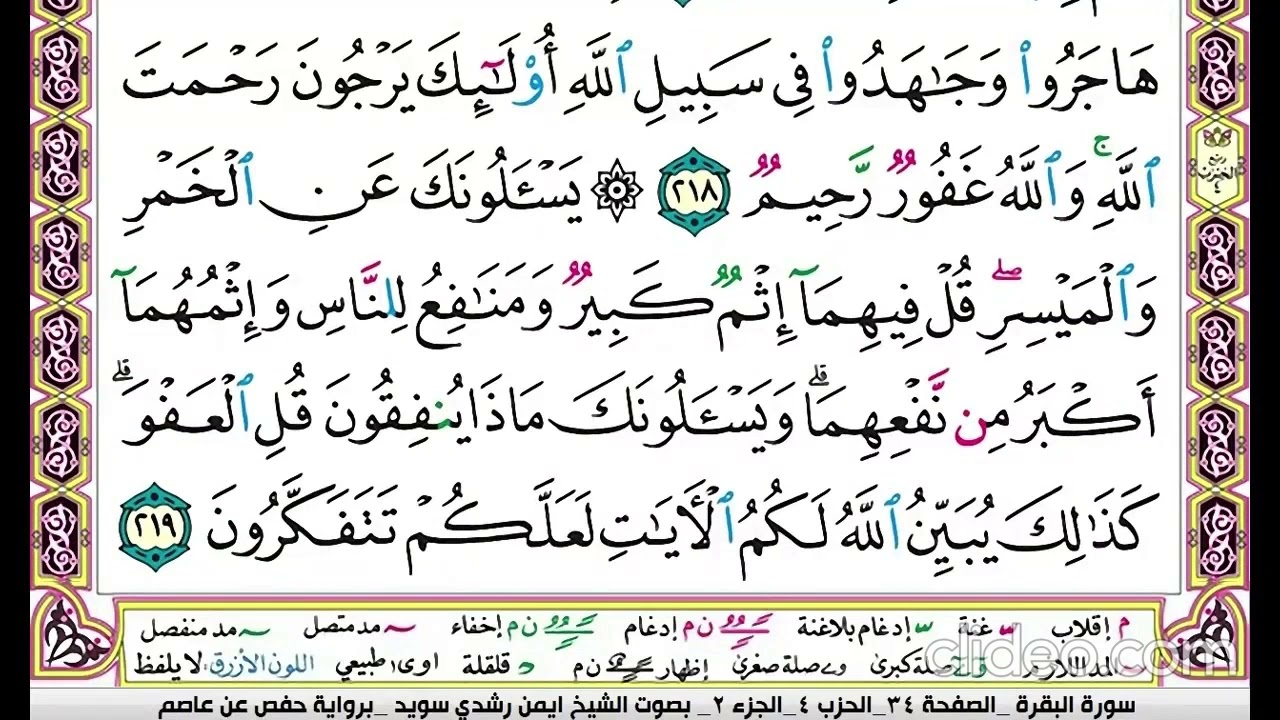 هَاجَرُوا۟ وَجَـٰهَدُوا۟ فِى سَبِيلِ ٱللَّهِ أُو۟لَـٰٓئِكَ يَرْجُونَ رَحْمَتَ
ٱللَّهِ ۚ وَٱللَّهُ غَفُورٌ رَّحِيمٌ ٢١٨ ۞ يَسْـَٔلُونَكَ عَنِ ٱلْخَمْرِ
وَٱلْمَيْسِرِ ۖ قُلْ فِيهِمَآ إِثْمٌ كَبِيرٌ وَمَنَـٰفِعُ لِلنَّاسِ وَإِثْمُهُمَآ
أَكْبَرُ مِن نَّفْعِهِمَا ۗ وَيَسْـَٔلُونَكَ مَاذَا يُنفِقُونَ قُلِ ٱلْعَفْوَ ۗ
كَذَٰلِكَ يُبَيِّنُ ٱللَّهُ لَكُمُ ٱلْـَٔايَـٰتِ لَعَلَّكُمْ تَتَفَكَّرُونَ ٢١٩
م إقلاب غنة إدغام بلاغنة ن م إدغام ن م إخفاء مد متصل مد منفصل
المد اللازم صلة كبرى و ے صلة صغرى إظهار ن م د قلقلة اوى طبيعي اللون الأزرق لا يلفظ
clideo.com
سورة البقرة _الصفحة ٣٤_الحزب ٤_الجزء ٢_ بصوت الشيخ ايمن رشدي سويد _برواية حفص عن عاصم